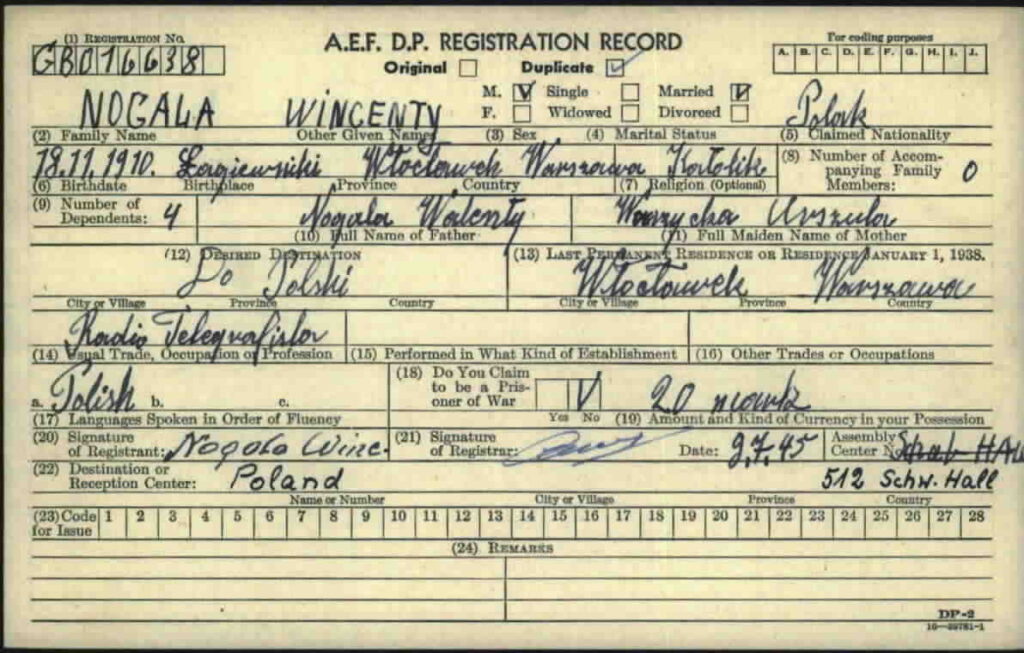 (1) REGISTRATION NO.
GB016638
A.E.F. D.P. REGISTRATION RECORD
Original Duplicate
For coding purposes
A. B. C. D. E. F. G. H. I. J.
M. V Single Married V
F. Widowed Divorced
NOGALA WINCENTY Polak
(2) Family Name Other Given Names (3) Sex (4) Marital Status (5) Claimed Nationality
18.11.1910. Łagiewniki Włocławek Warszawa Katolik
(6) Birthdate Birthplace Province Country (7) Religion (Optional)
(8) Number of Accompanying Family Members: 0
(9) Number of Dependents: 4
Nogala Walenty Urszula
(10) Full Name of Father (11) Full Maiden Name of Mother
(12) DESIRED DESTINATION (13) LAST PERMANENT RESIDENCE OR RESIDENCE JANUARY 1, 1938.
Do Polski Włocławek Warszawa
City or Village Province Country City or Village Province Country
Radio Telegrafista
(14) Usual Trade, Occupation or Profession (15) Performed in What Kind of Establishment (16) Other Trades or Occupations
a. Polish b. c.
(17) Languages Spoken in Order of Fluency
(18) Do You Claim to be a Prisoner of War V
Yes No
20 mark
(19) Amount and Kind of Currency in your Possession
(20) Signature of Registrant: Nogala Winc.
(21) Signature of Registrar:
Date: 9.7.45 Assembly Center No.
(22) Destination or Reception Center: Poland 512 Schw. Hall
Name or Number City or Village Province Country
(23) Code for Issue 1 2 3 4 5 6 7 8 9 10 11 12 13 14 15 16 17 18 19 20 21 22 23 24 25 26 27 28
(24) REMARKS
DP-2
16-39781-1